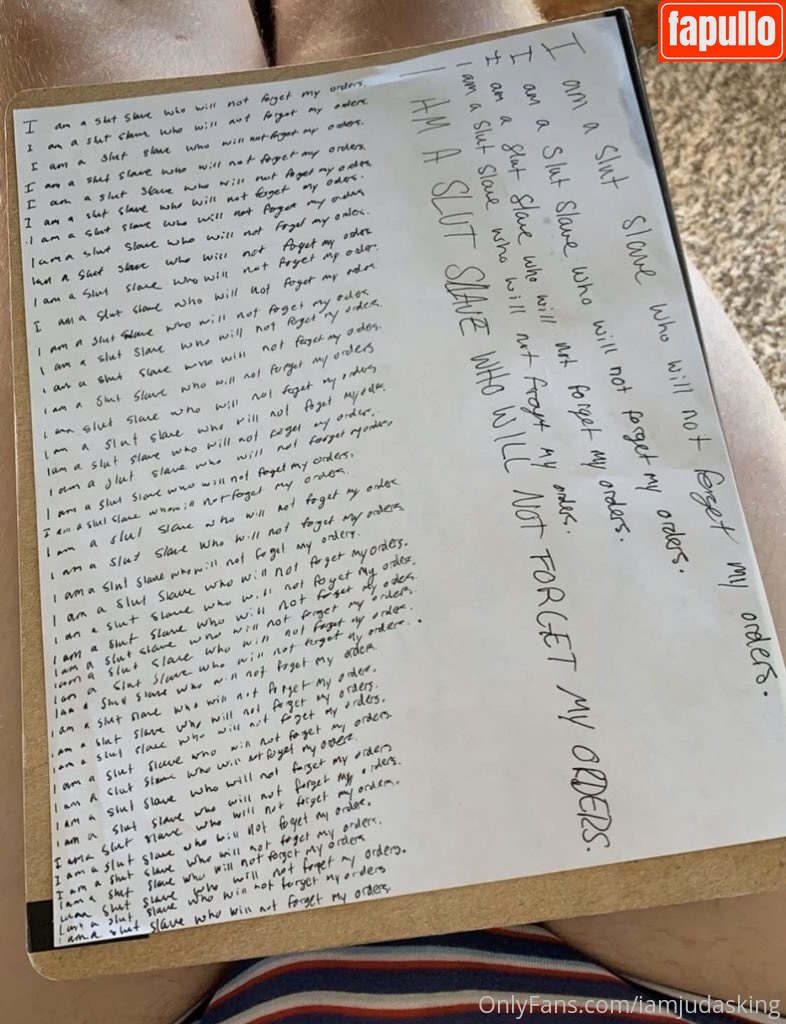 fapullo
I am a slut slave who will not forget my orders.
I am a slut slave who will not forget my orders
I am a slut slave who will not forget my orders.
I am a slut slave who will not forget my orders
I am a slut slave who will not forget my orders
I am a slut slave who will not forget my orders.
I am a slut slave who will not forget my orders
I am a slut slave who will not forget my orders.
I am a slut slave who will not forget my orders
I am a slut slave who will not forget my orders.
I am a slut slave who will not forget my orders
I am a slut slave who will not forget my orders
I am a slut slave who will not forget my orders.
I am a slut slave who will not forget my orders.
I am a slut slave who will not forget my orders
I am a slut slave who will not forget my orders
I am a slut slave who will not forget my orders.
I am a slut slave who will not forget my orders.
I am a slut slave who will not forget my orders
I am a slut slave who will not forget my orders.
I am a slut slave who will not forget my orders.
I am a slut slave who will not forget my orders
I am a slut slave who will not forget my orders
I am a slut slave who will not forget my orders.
I am a slut slave who will not forget my orders.
I am a slut slave who will not forget my orders.
I am a slut slave who will not forget my orders.
I am a slut slave who will not forget my orders.
I am a slut slave who will not forget my orders.
I am a slut slave who will not forget my orders.
I am a slut slave who will not forget my orders
I am a slut slave who will not forget my orders.
I am a slut slave who will not forget my orders.
I am a slut slave who will not forget my orders.
I am a slut slave who will not forget my orders.
I am a slut slave who will not forget my orders.
I am a slut slave who will not forget my orders
I am a slut slave who will not forget my orders.
I am a slut slave who will not forget my orders.
I am a slut slave who will not forget my orders.
I am a slut slave who will not forget my orders.
I am a slut slave who will not forget my orders
I am a slut slave who will not forget my orders.
I am a slut slave who will not forget my orders
I am a slut slave who will not forget my orders
I am a slut slave who will not forget my orders.
I am a slut slave who will not forget my orders.
I am a slut slave who will not forget my orders.
I am a slut slave who will not forget my orders.
I AM A SLUT SLAVE WHO WILL NOT FORGET MY ORDERS.
OnlyFans.com/iamjudasking